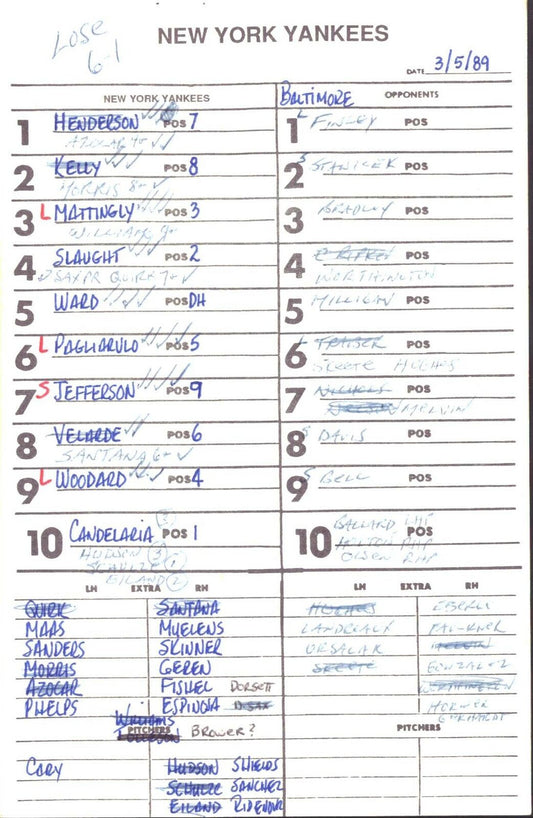 LOSE
6-1
NEW YORK YANKEES
DATE 3/5/89
NEW YORK YANKEES
1 HENDERSON POS 7
AZOCAR
2 KELLY POS 8
MORRIS 8
3 L MATTINGLY POS 3
WILLIAMS
4 SLAUGHT POS 2
QUIRK
5 WARD POS DH
6 L PAGLIARULO POS 5
7 S JEFFERSON POS 9
8 VELARDE POS 6
SANTANA 6
9 L WOODARD POS 4
10 CANDELARIA (3) POS 1
HUDSON (3)
SCHULZE (1)
EILAND (2)
BALTIMORE OPPONENTS
1 L FINLEY POS
2 S STANICEK POS
3 BRADLEY POS
4 C RIPKEN POS
WORTHINGTON
5 MILLIGAN POS
6 L TRABER POS
SKEETE HUGHES
7 NICHOLS POS
MELVIN
8 S DAVIS POS
9 S BELL POS
10 BALLARD LHP POS
HOLTON RHP
OLSEN RHP
LH EXTRA RH
QUIRK SANTANA
MAAS MUELENS
SANDERS SKINNER
MORRIS GEREN
AZOCAR FISHEL DORSETT
PHELPS ESPINOIA
WILLIAMS
TOLLESON
PITCHERS BROWER?
CARY HUDSON SHIELDS
SCHULZE SANCHEZ
EILAND RIDENOUR
LH EXTRA RH
HUGHES EBERLE
LANDREAUX FALKNER
ORSULAK MELVIN
SKEETE GONZALEZ
WORTHINGTON
HORNER
GERHARDT
PITCHERS